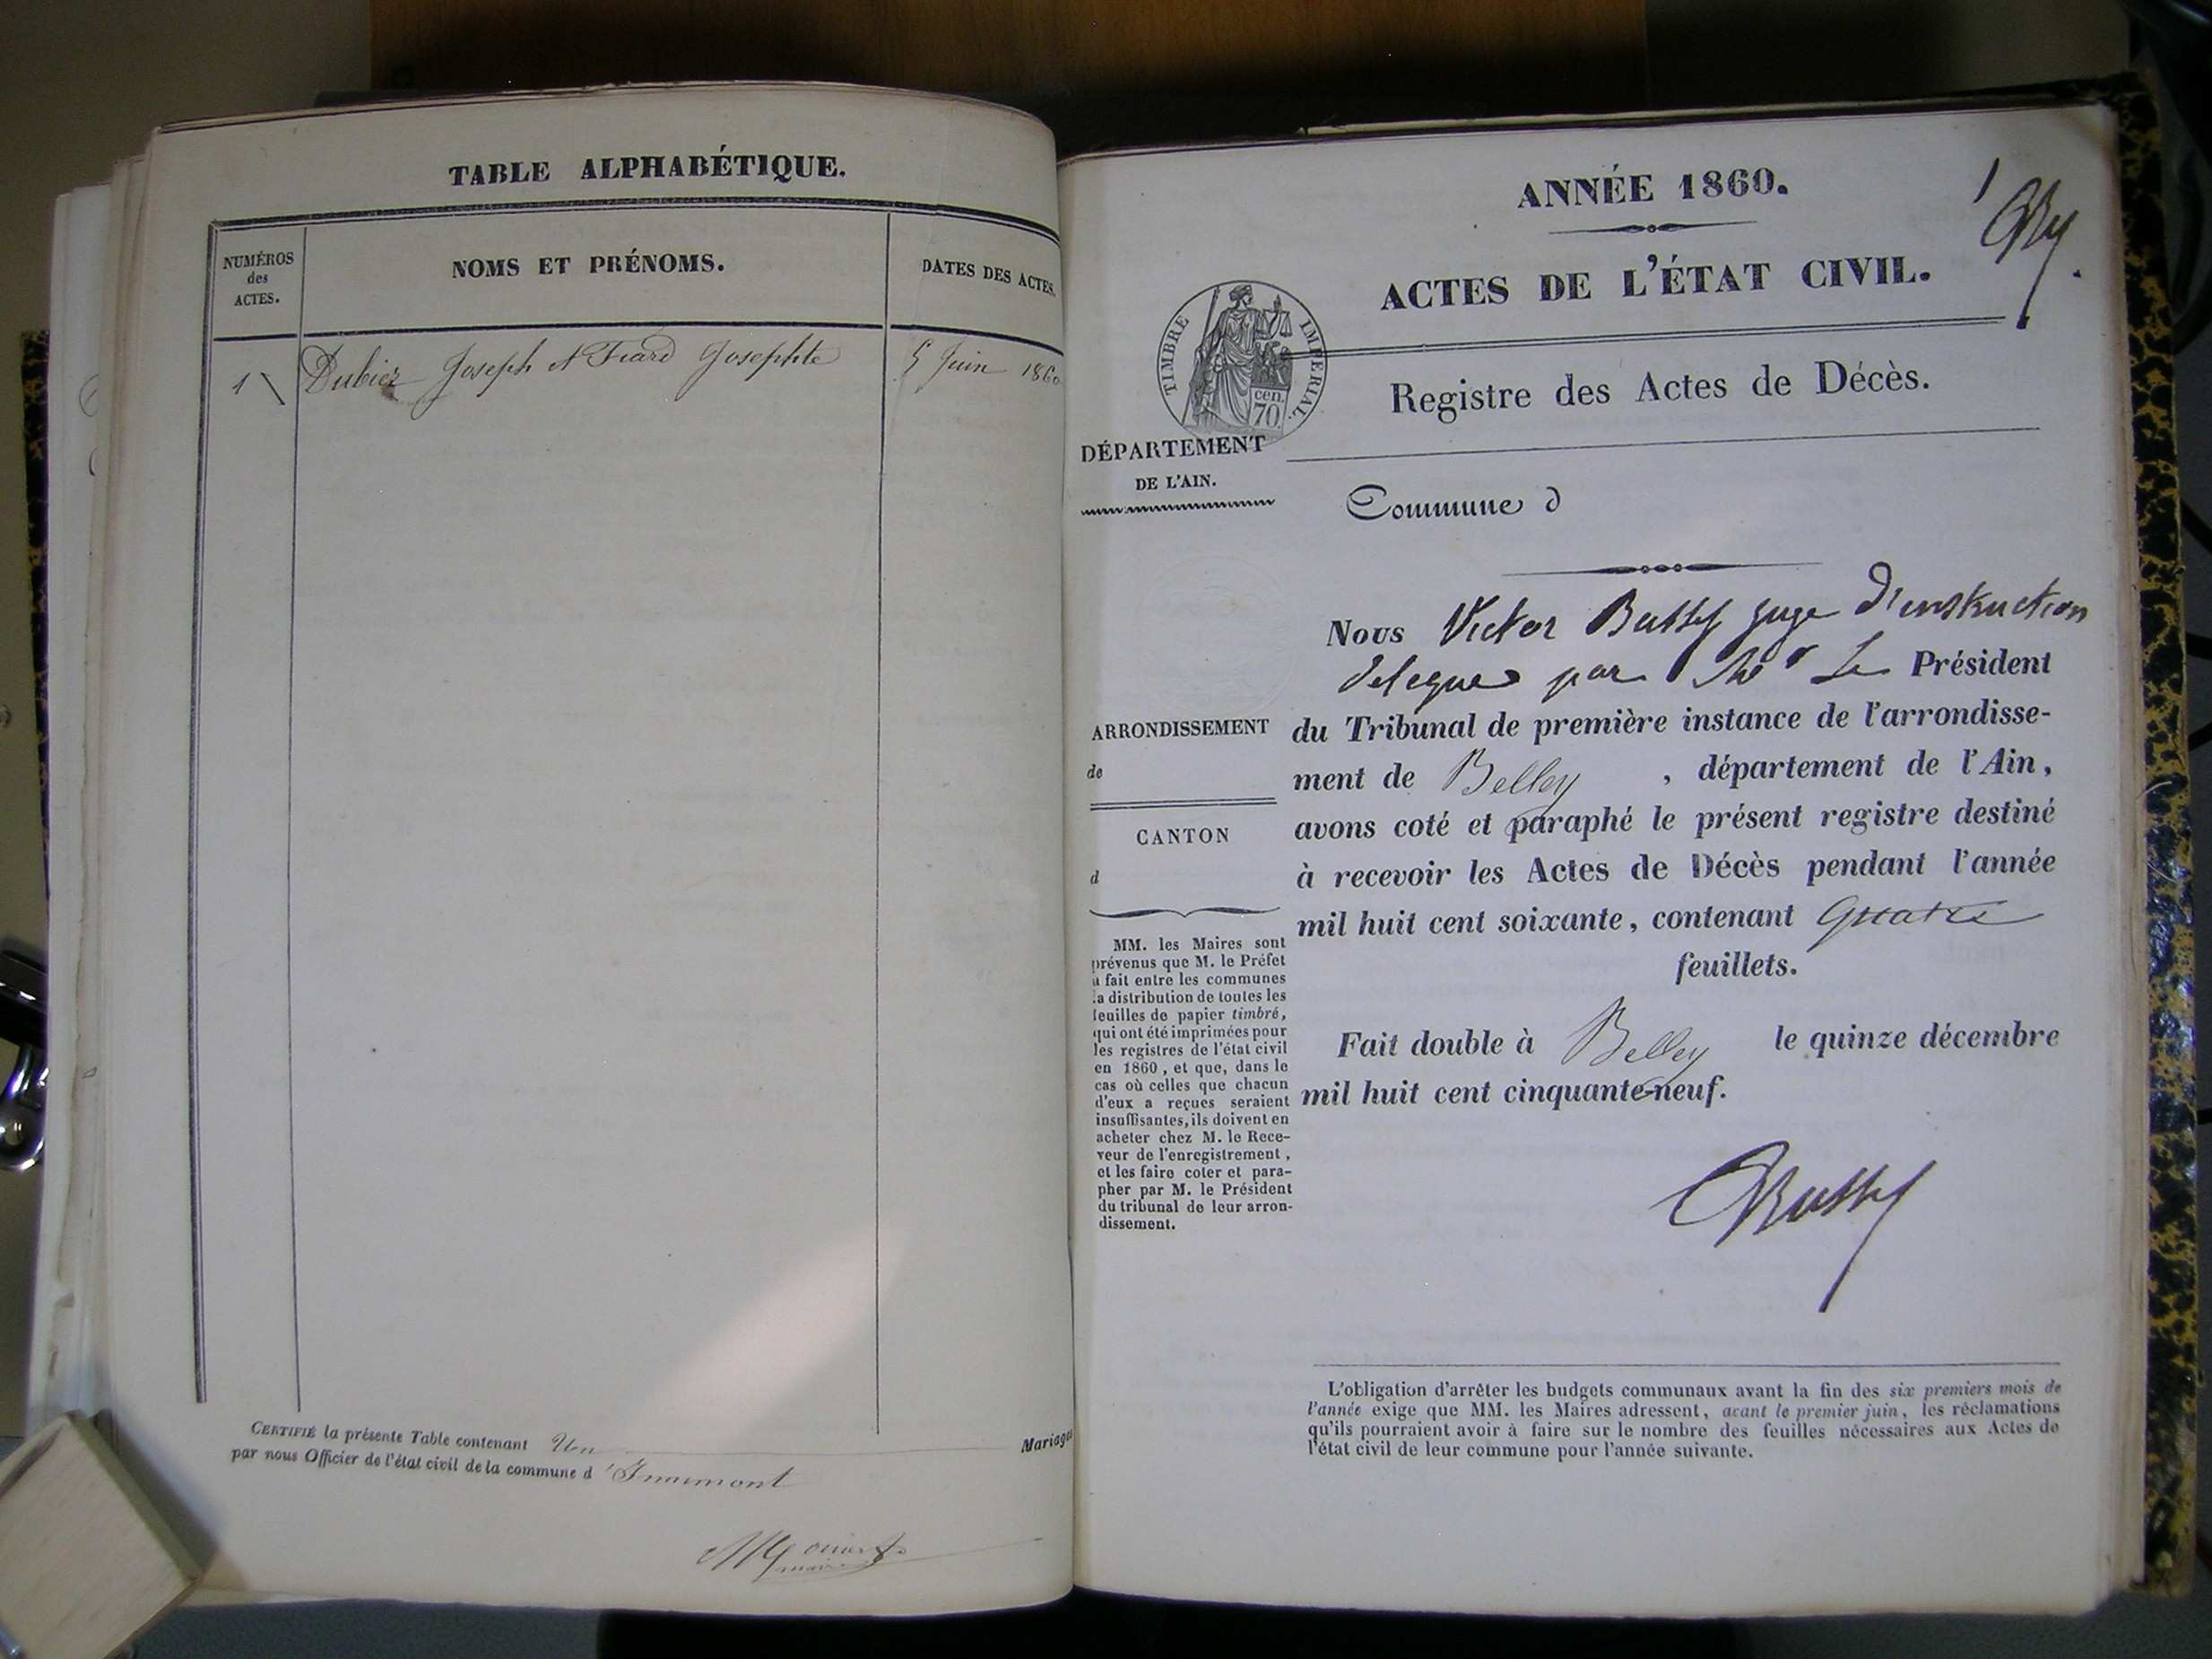 TABLE ALPHABÉTIQUE.
NUMÉROS
des
ACTES.
NOMS ET PRÉNOMS.
DATES DES ACTES.
1 Dubiez Joseph et Fiard Josephte 5 Juin 1860
CERTIFIÉ la présente Table contenant Un Mariages
par nous Officier de l'état civil de la commune d'Innimont
maire
1
ANNÉE 1860.
ACTES DE L'ÉTAT CIVIL.
TIMBRE IMPÉRIAL.
cen.
70
Registre des Actes de Décès.
DÉPARTEMENT
DE L'AIN.
Commune d
Nous Victor Bussy juge d'instruction
delegue par Mr Le Président
du Tribunal de première instance de l'arrondisse-
ment de Belley , département de l'Ain,
avons coté et paraphé le présent registre destiné
à recevoir les Actes de Décès pendant l'année
mil huit cent soixante, contenant quatre
feuillets.
Fait double à Belley le quinze décembre
mil huit cent cinquante-neuf.
Bussy
ARRONDISSEMENT
de
CANTON
d
MM. les Maires sont
prévenus que M. le Préfet
a fait entre les communes
la distribution de toutes les
feuilles de papier timbré,
qui ont été imprimées pour
les registres de l'état civil
en 1860, et que, dans le
cas où celles que chacun
d'eux a reçues seraient
insuffisantes, ils doivent en
acheter chez M. le Rece-
veur de l'enregistrement,
et les faire coter et para-
pher par M. le Président
du tribunal de leur arron-
dissement.
L'obligation d'arrêter les budgets communaux avant la fin des six premiers mois de
l'année exige que MM. les Maires adressent, avant le premier juin, les réclamations
qu'ils pourraient avoir à faire sur le nombre des feuilles nécessaires aux Actes de
l'état civil de leur commune pour l'année suivante.